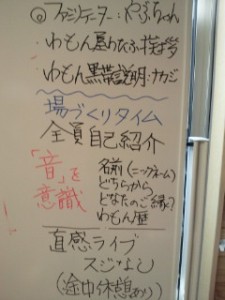 ◎ファシリテーター:やぶちゃん
・わもん屋わたふ挨拶
・わもん黒帯説明:ナカジ
場づくりタイム
全員自己紹介
「音」を
意識
名前(ニックネーム)
どちらから
どなたのご縁?
わもん歴
直感ライブ
スジなし
(途中休憩あり)